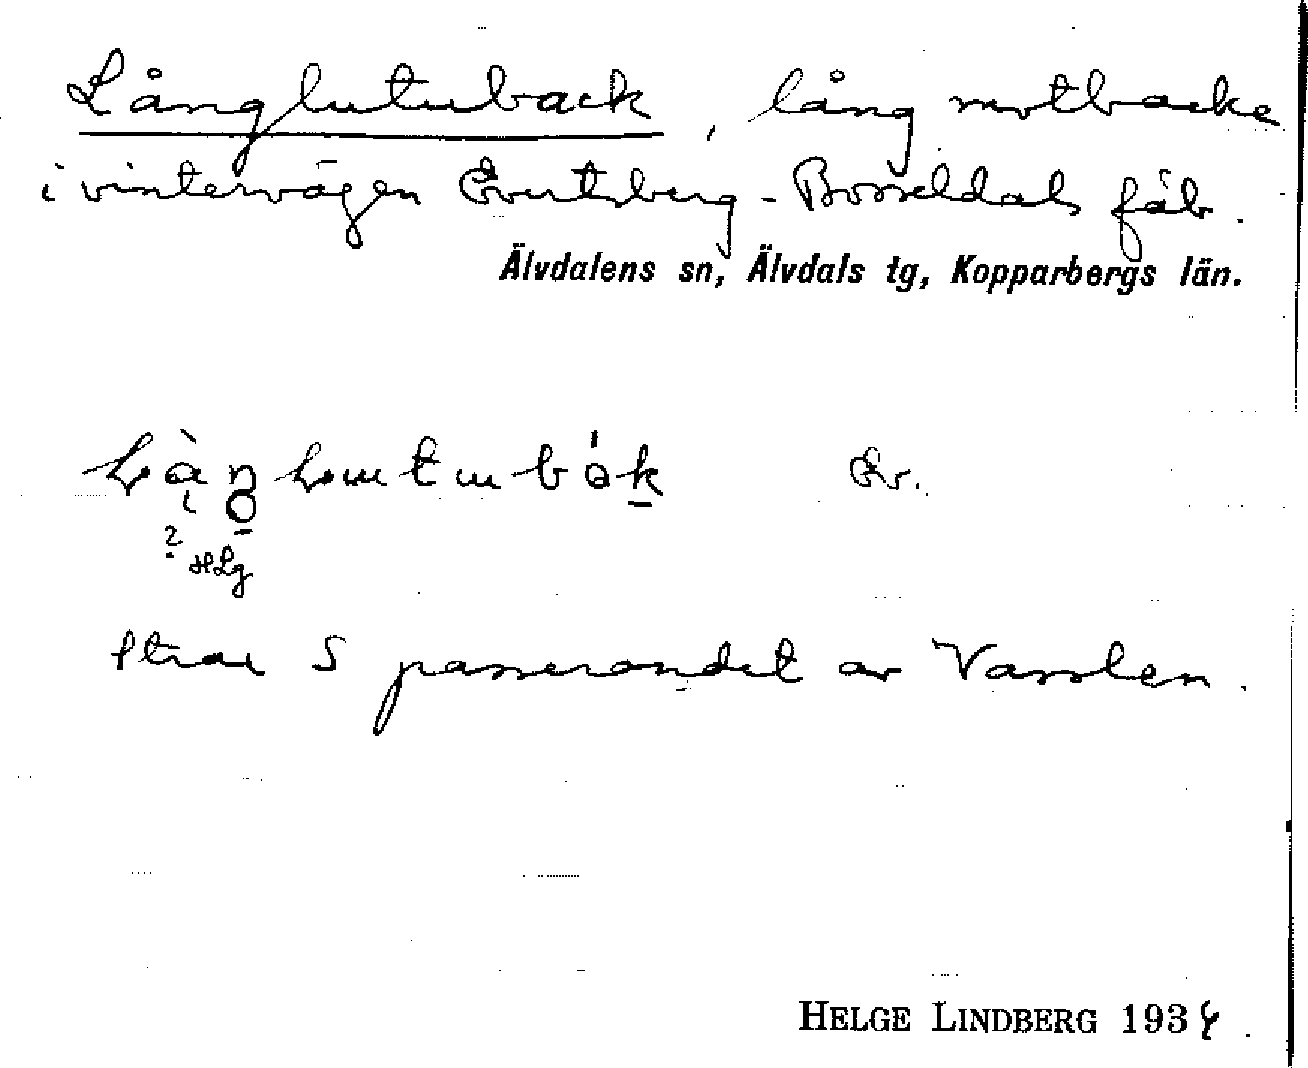 Långlutuback, lång motbacke
i vintervägen Evertsberg - Bosseldals fäb.
Älvdalens sn, Älvdals tg, Kopparbergs län.
Ev.
? HLg
Strax S passerandet av Vasslen.
HELGE LINDBERG 1934.